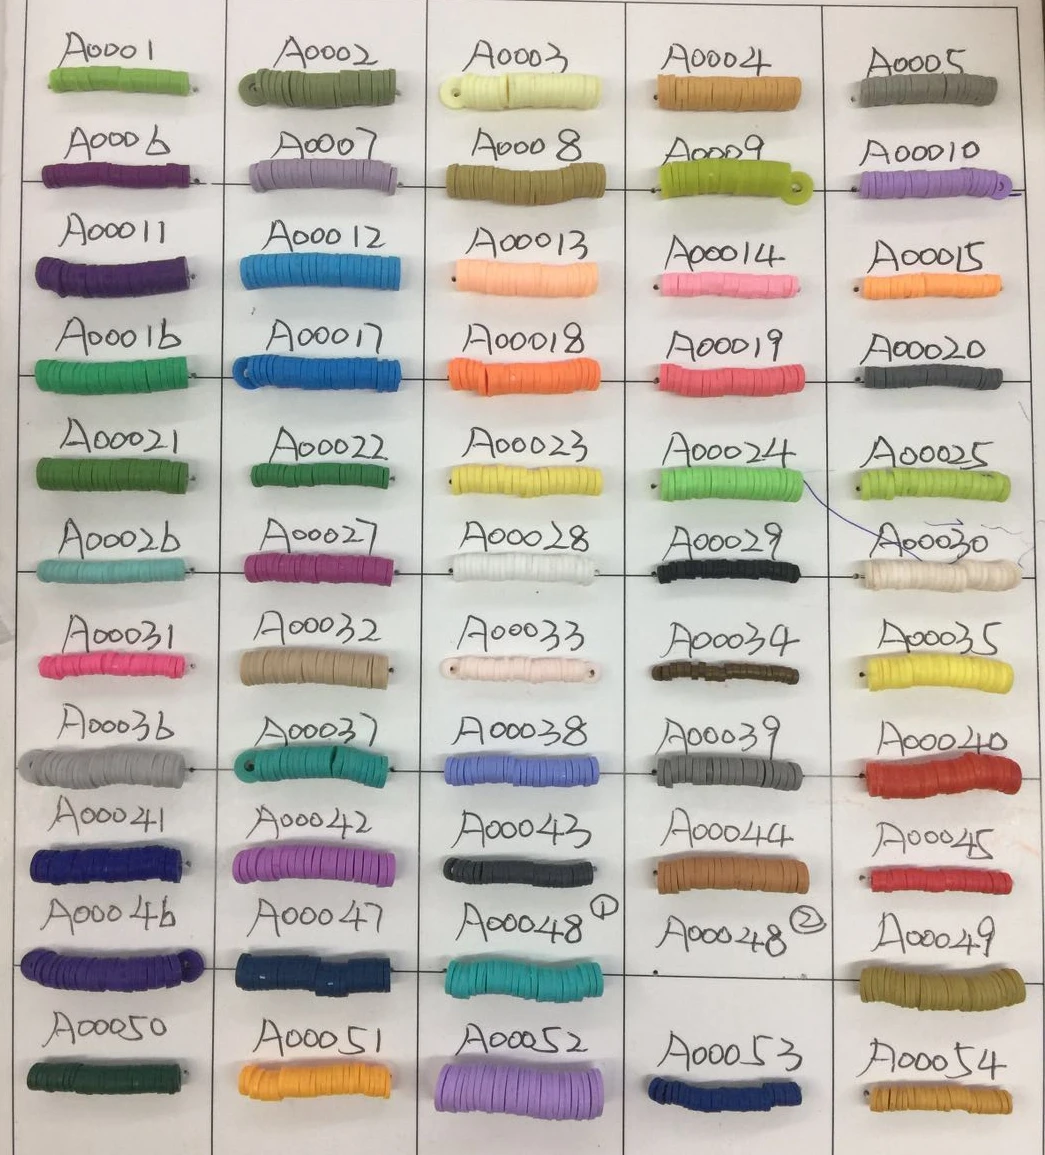 A0001 A0002 A0003 A0004 A0005
A0006 A0007 A0008 A0009 A00010
A00011 A00012 A00013 A00014 A00015
A00016 A00017 A00018 A00019 A00020
A00021 A00022 A00023 A00024 A00025
A00026 A00027 A00028 A00029 A00030
A00031 A00032 A00033 A00034 A00035
A00036 A00037 A00038 A00039 A00040
A00041 A00042 A00043 A00044 A00045
A00046 A00047 A00048① A00048② A00049
A00050 A00051 A00052 A00053 A00054